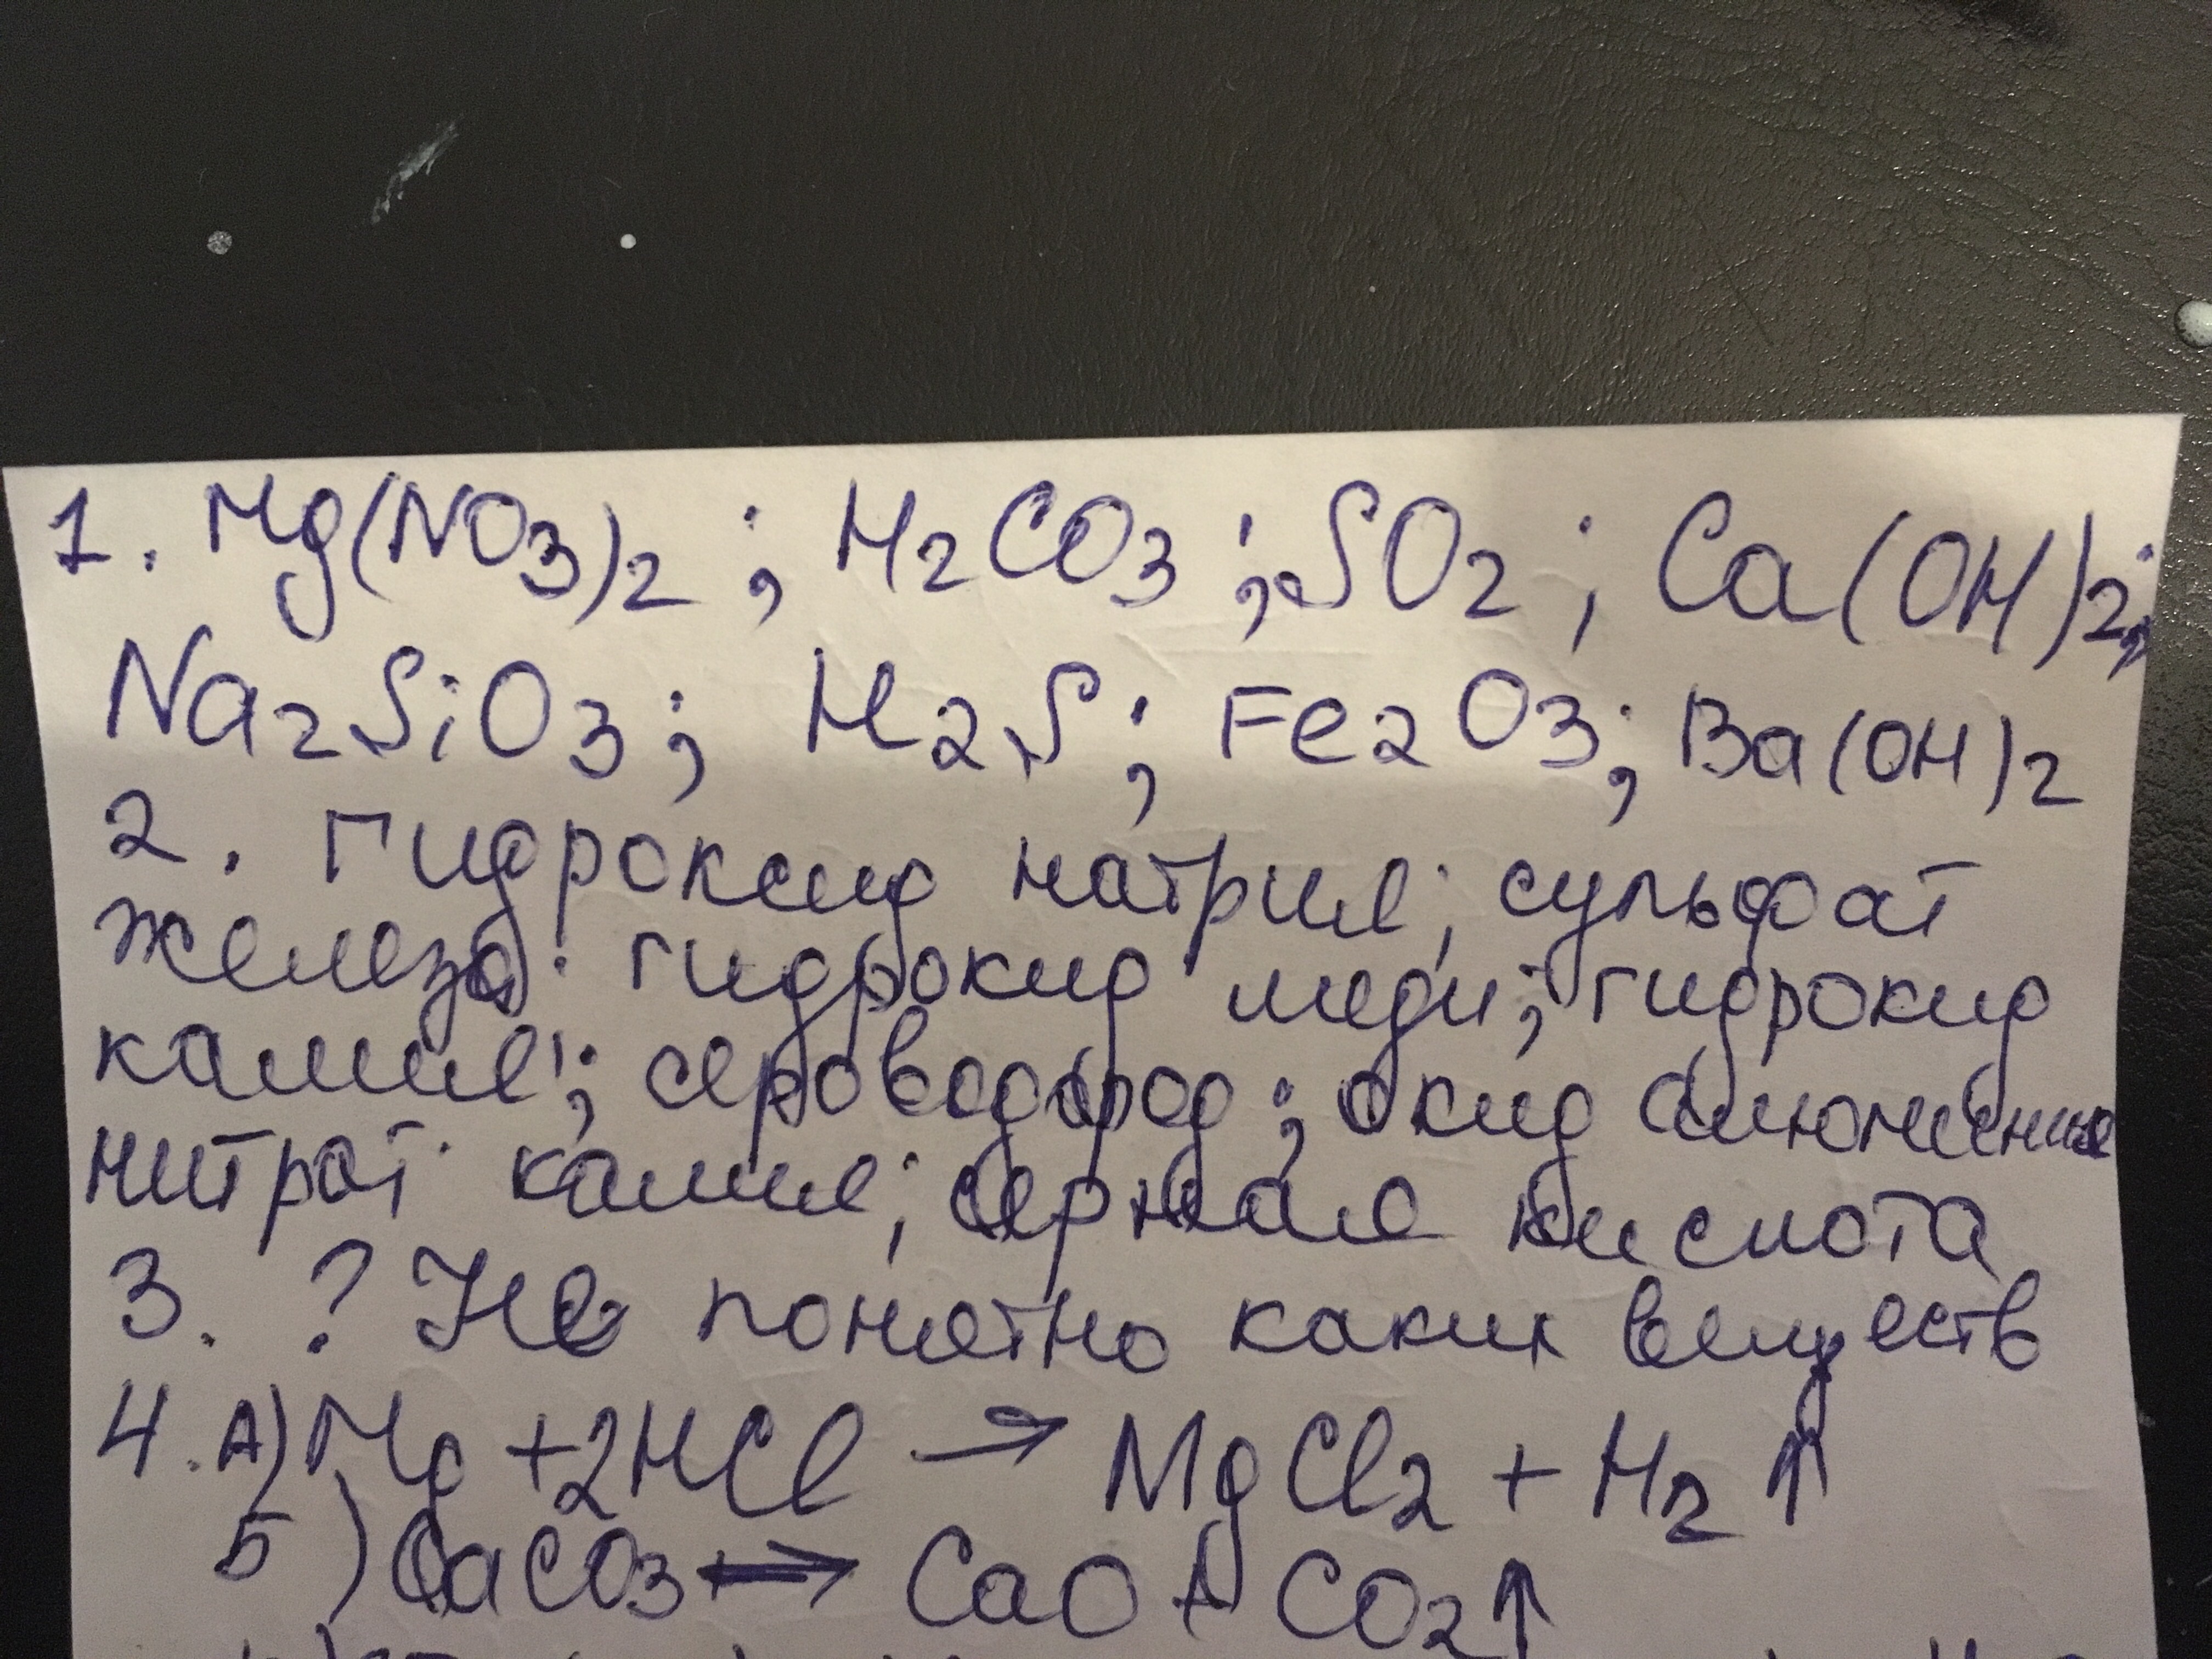 1. Mg(NO3)2 ; H2CO3 ; SO2 ; Ca(OH)2;
Na2SiO3; H2S; Fe2O3; Ba(OH)2
2. Гидроксид натрия; сульфат
железа; гидрокид меди; гидрокид
калия; сероводород; окид алюминия
нитрат калия; серная кислота
3. ? Не понятно каких веществ
4. А) Mg + 2HCl → MgCl2 + H2 ↑
Б) CaCO3 → CaO + CO2 ↑